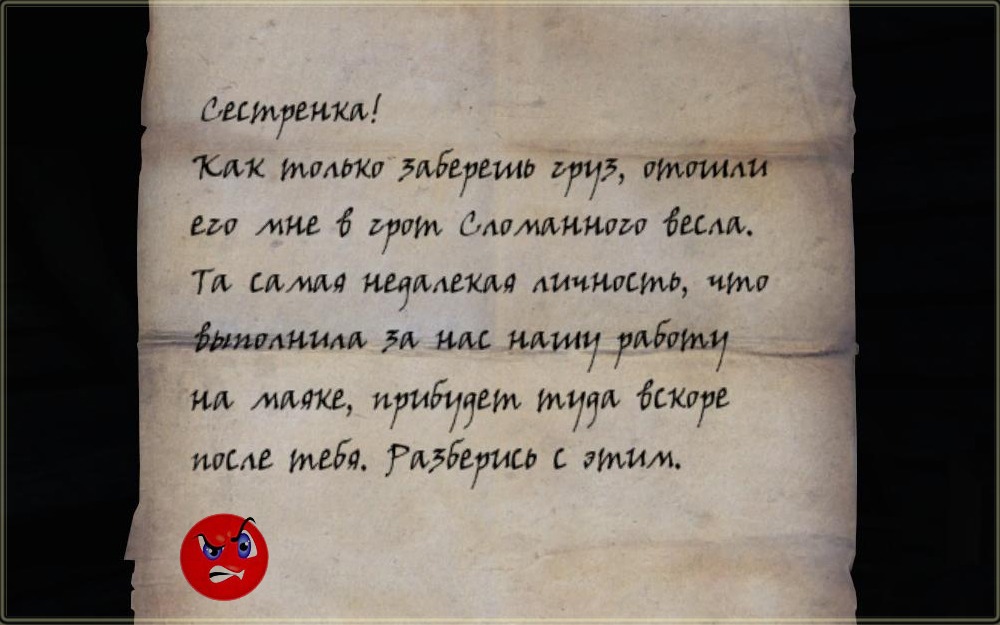 Сестренка!
Как только заберешь груз, отошли
его мне в грот Сломанного весла.
Та самая недалекая личность, что
выполнила за нас нашу работу
на маяке, прибудет туда вскоре
после тебя. Разберись с этим.